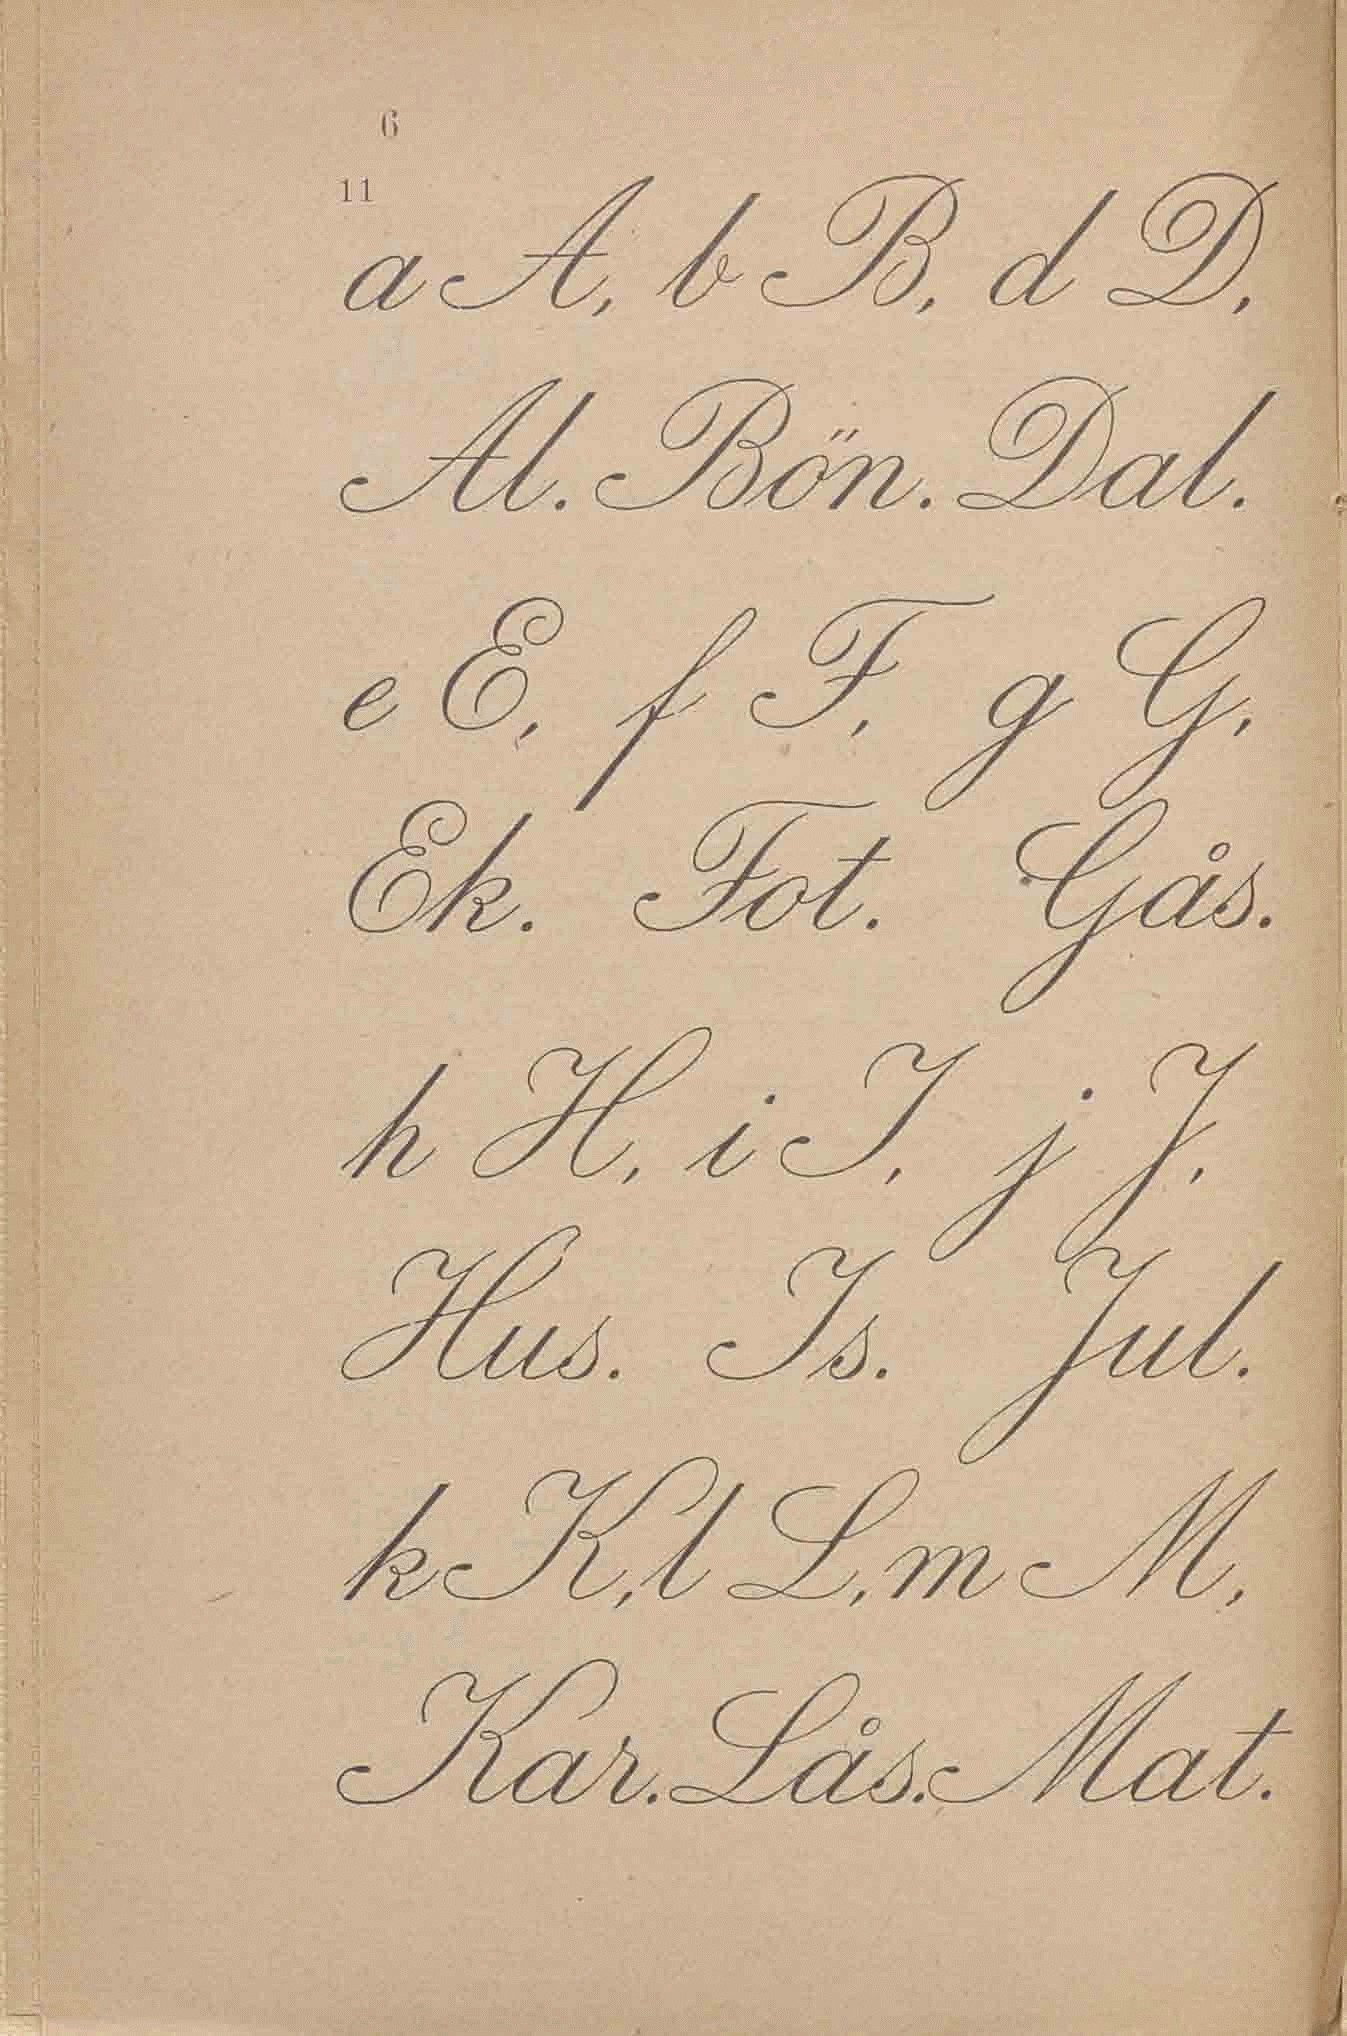 6
11
a A, b B, d D,
Al. Bön. Dal.
e E, f F, g G,
Ek. Fot. Gås.
h H, i I, j J,
Hus. Is. Jul.
k K, l L, m M,
Kar. Lås. Mat.